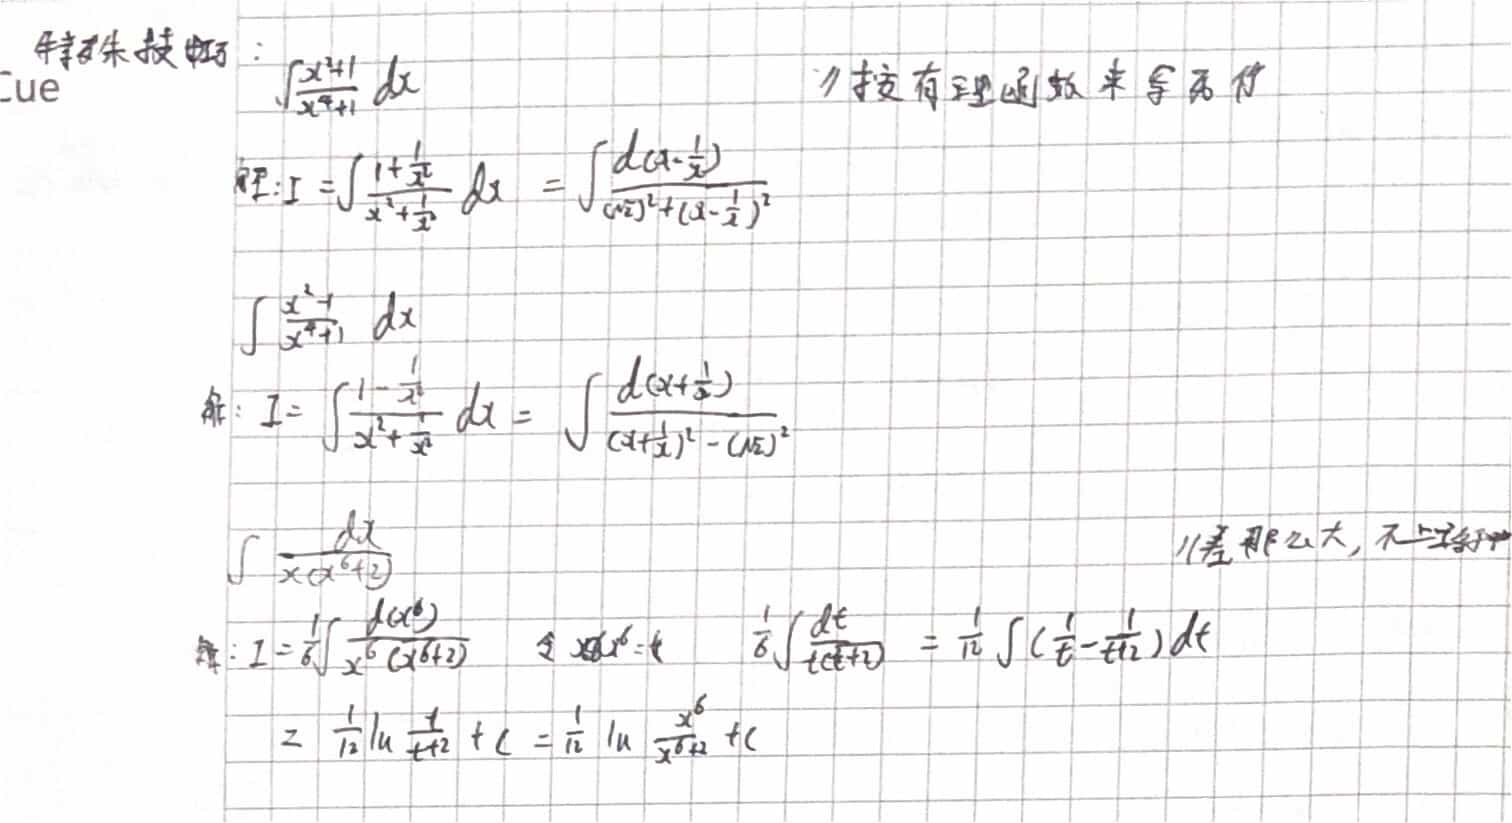 特殊技巧:
Cue
∫ (x²+1)/(x⁴+1) dx //按有理函数来拿不行
解: I = ∫ (1+1/x²)/(x²+1/x²) dx = ∫ d(x-1/x)/((√2)²+(x-1/x)²)
∫ (x²-1)/(x⁴+1) dx
解: I = ∫ (1-1/x²)/(x²+1/x²) dx = ∫ d(x+1/x)/((x+1/x)²-(√2)²)
∫ dx/(x(x⁶+2)) //差那么大,不
解: I = 1/6 ∫ d(x⁶)/(x⁶(x⁶+2)) 令 x⁶=t 1/6 ∫ dt/(t(t+2)) = 1/12 ∫ (1/t - 1/(t+2)) dt
= 1/12 ln t/(t+2) + C = 1/12 ln x⁶/(x⁶+2) + C